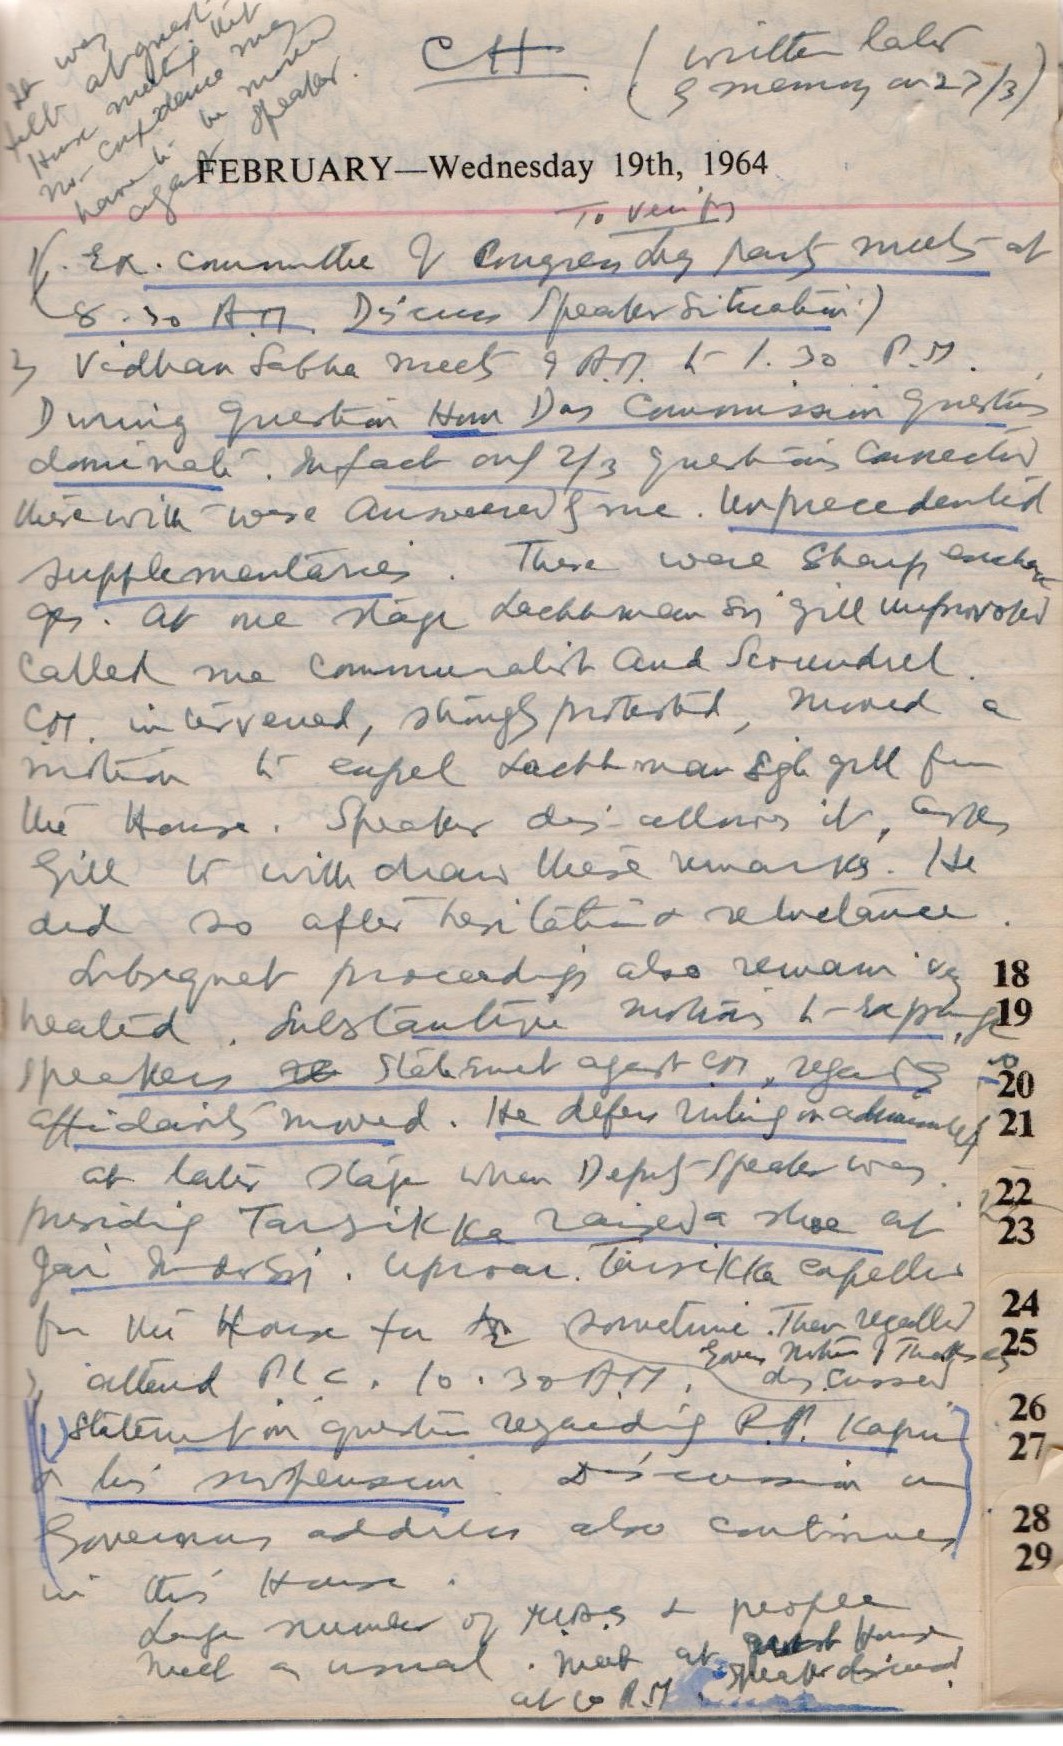 It was
told at guest
House meeting that
no-confidence may
have to be moved
against Speaker.
CH
(written later
& memory on 27/3)
FEBRUARY—Wednesday 19th, 1964
To verify
1/. Ex. committee of Congress leg party meets at
8.30 A.M. Discuss Speaker Situation)
Vidhan Sabha meets 9 A.M. to 1.30 P.M.
During Question Hour Das Commission questions
dominate. Infact only 2/3 questions connected
therewith were answered by me. Unprecedented
supplementaries. There were sharp exchan
ges. At one stage Lachhman Sgh gill unprovoked
called me communalist and Scoundrel.
CM. intervened, strongly protested, moved a
motion to expel Lachhman Sgh gill from
the House. Speaker disallows it, asks
Gill to withdraw these remarks. He
did so after hesitation & reluctance.
Subsequent proceedings also remain very
heated. Substantive motions to expunge
Speakers statement against CM, regarding
affidavits moved. He defers ruling on admissibility
at later stage when Deputy Speaker was
presiding Tarsikka raised a shoe at
Jai Inder Sgh. Uproar. Tarsikka expelled
from the House for sometime. Then recalled
attend P.L.C. 10.30 A.M. Govr Motion of Thanks
discussed
Statement on question regarding P.N. Kapur
& his suspension. Discussion on
Governors address also continues
in this House.
Large number of MLAs & people
meet as usual. Meet at guest House
at 6 P.M. Speaker discussed.
18
19
20
21
22
23
24
25
26
27
28
29